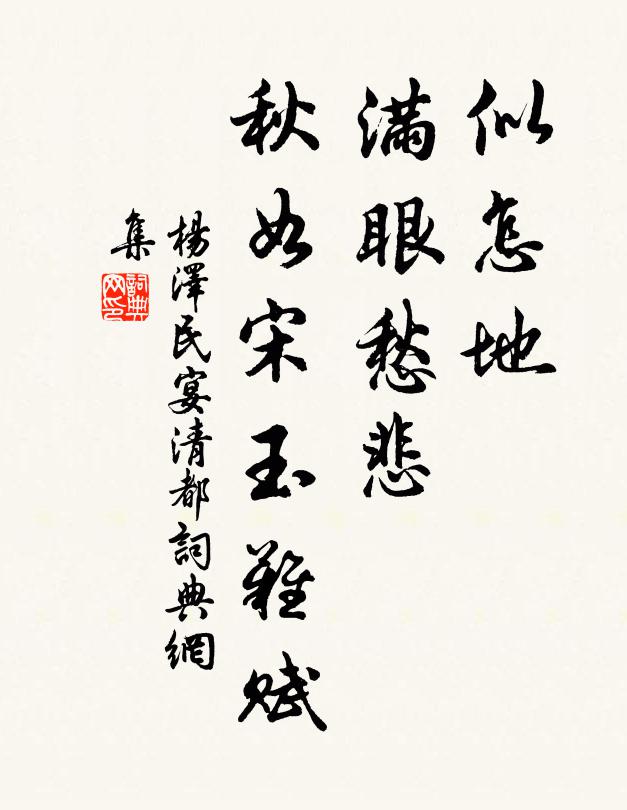 似怎地
滿眼愁悲
秋如宋玉難賦
楊澤民宴清都詞典網
集
詞典
网印